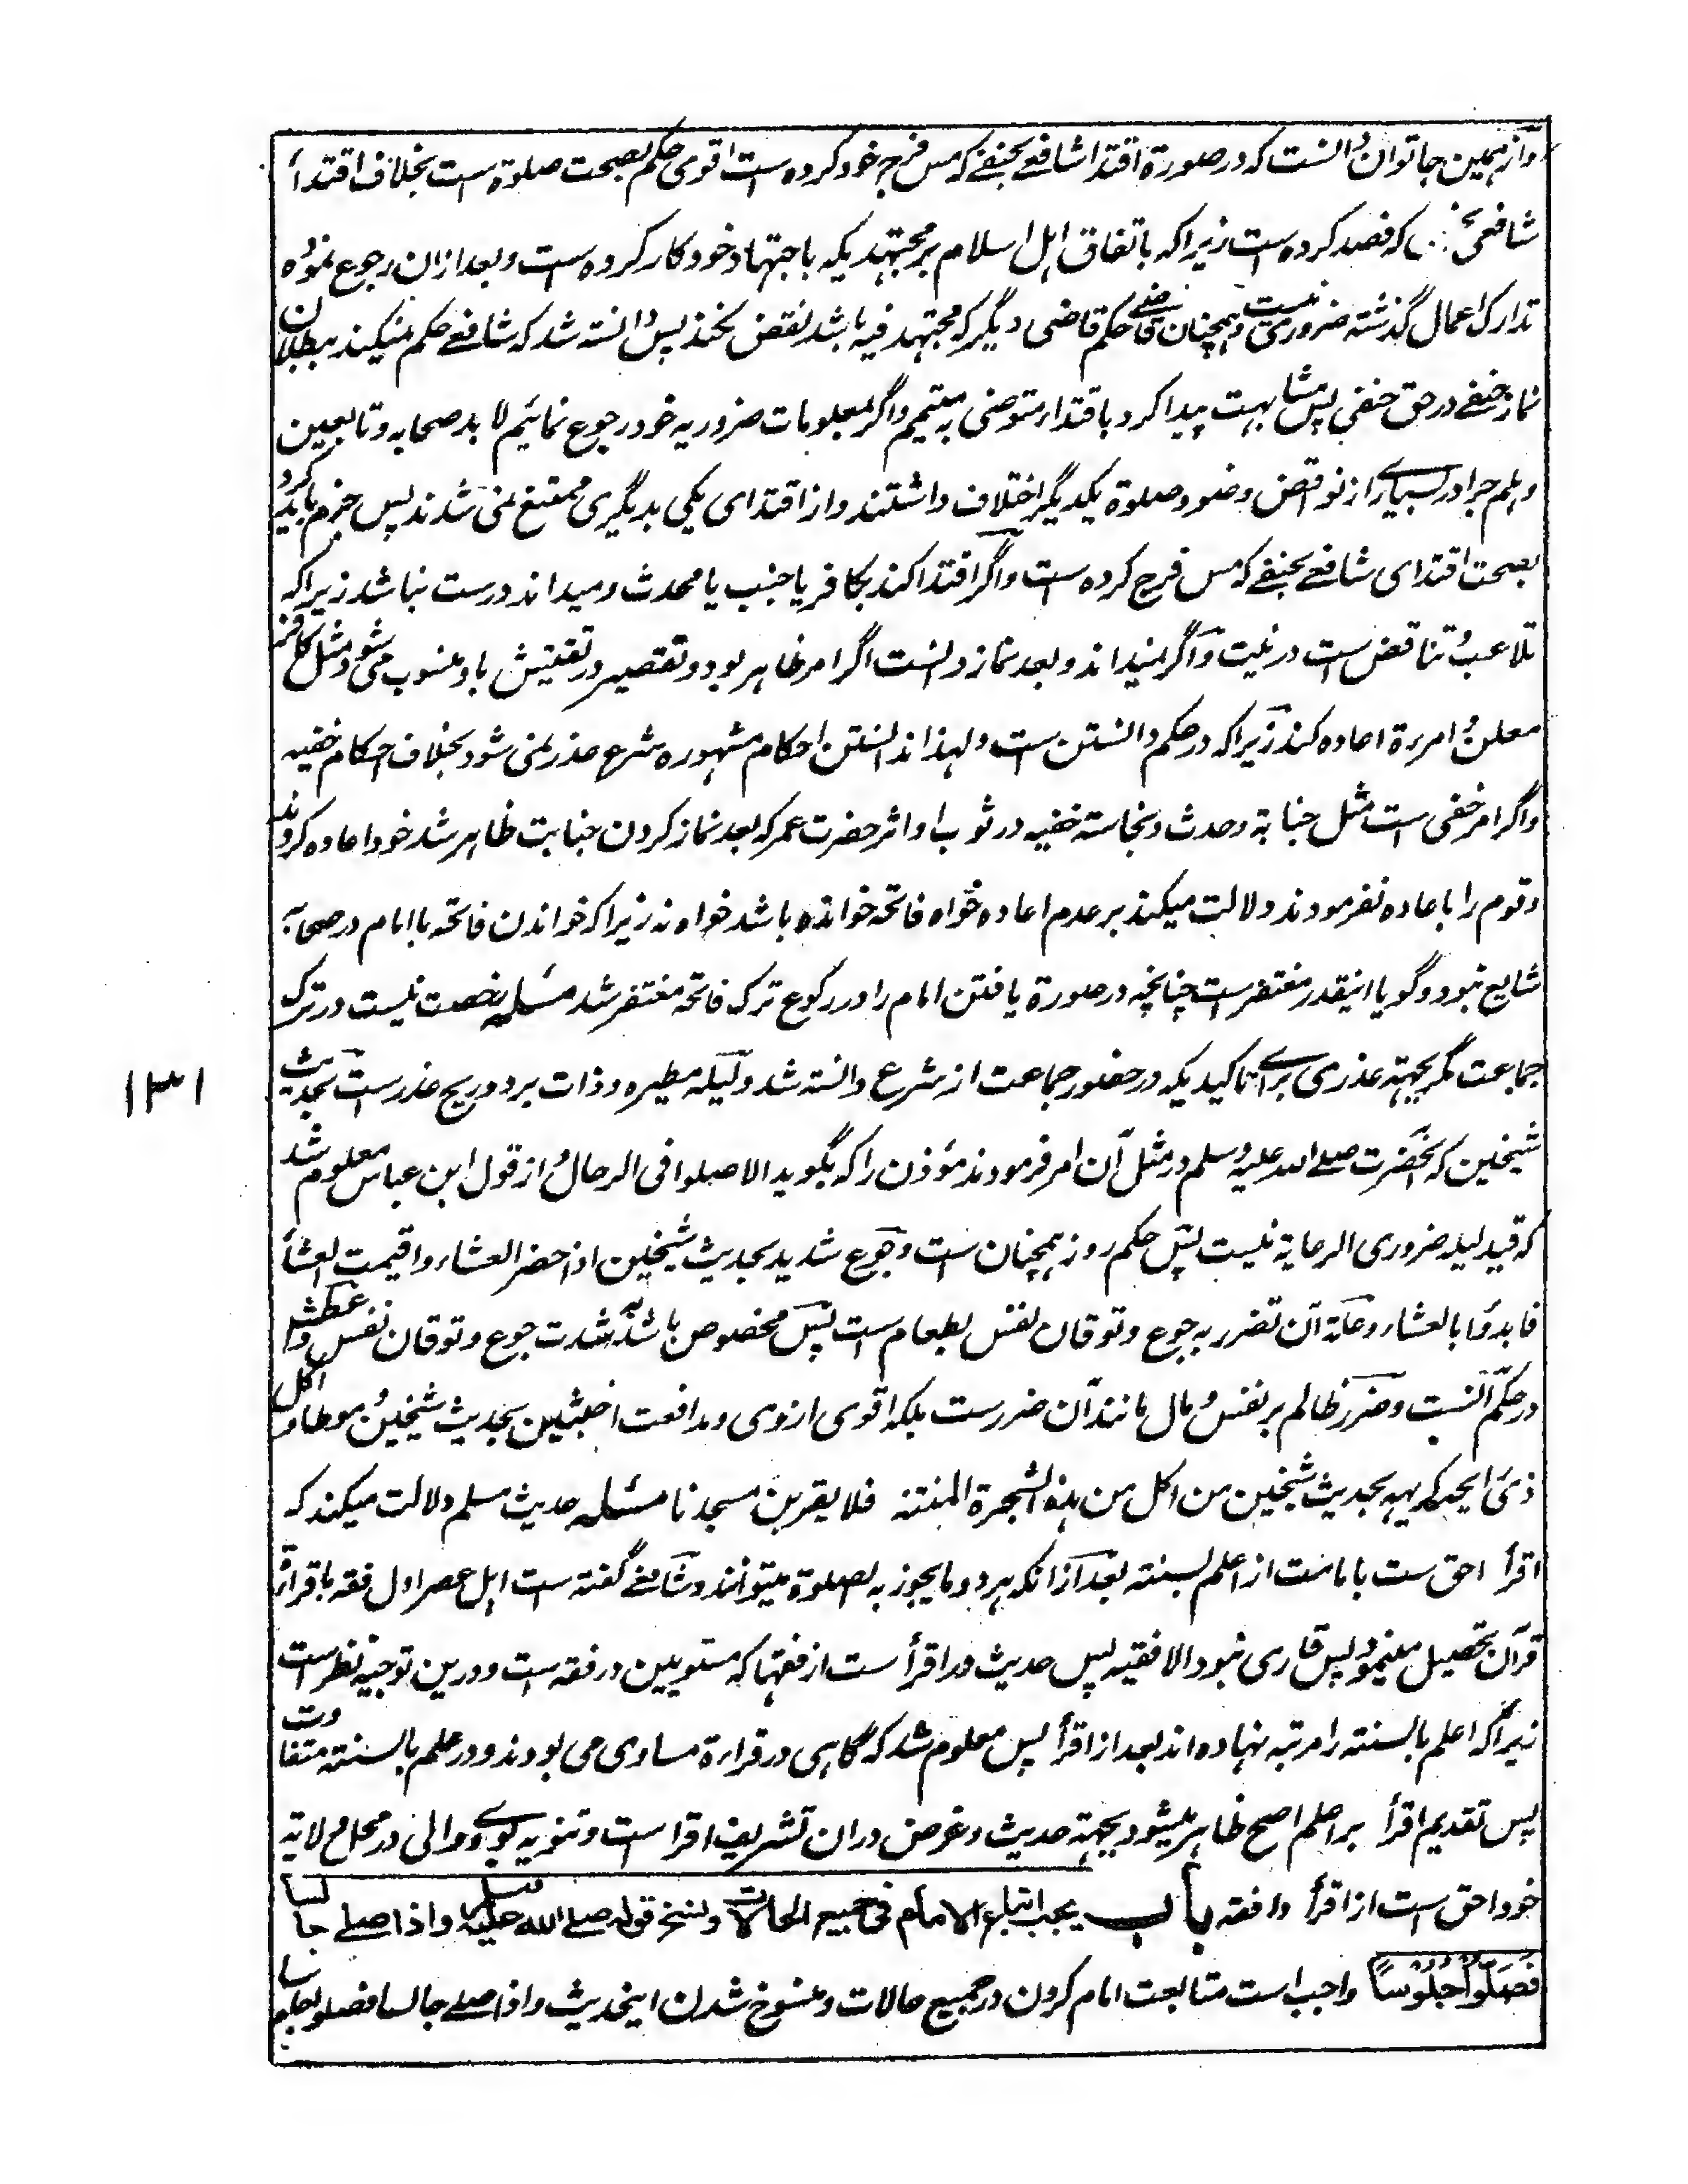 وازہمین جا توان دانست کہ در صورۃ اقتدا شافعے بحنفے کہ مس فرج خود کردہ است اقوی حکم بصحت صلوۃ است بخلاف اقتدأ
شافعی کہ فصد کردہ است زیراکہ باتفاق اہل اسلام بر مجتہدیکہ باجتہاد خود کار کردہ است و بعد ازان رجوع نمودہ
تدارک اعمال گذشتہ ضروری نیست و ہمچنان قاضے حکم قاضی دیگر کہ مجتہد فیہ باشد نقض نکند پس دانستہ شد کہ شافعے حکم میکند ببطلان
نماز حنفے در حق حنفی پس مشابہت پیدا کرد باقتداء متوضی بہ متیمم و اگر بمعلومات ضروریہ خود رجوع نمائیم لابد صحابہ و تابعین
وہلم جرا در بسیاری از نواقض وضو و صلوۃ یکدیگر اختلاف داشتند و از اقتدای یکی بدیگری ممتنع نمی شدند پس جزم باید کرد
بصحت اقتدای شافعے بحنفے کہ مس فرج کردہ است و اگر اقتدا کند بکافر یا جنب یا محدث و میداند درست نباشد زیراکہ
تلاعب و تناقض است در نیت و اگر نمیداند و بعد نماز دانست اگر امر ظاہر بود و تقصیر در تفتیش باو منسوب می شود مثل کافر
معلن و امرءۃ اعادہ کند زیراکہ در حکم دانستن ست و لہذا ندانستن احکام مشہورہ شرع عذر نمی شود بخلاف احکام خفیہ
و اگر امر خفی است مثل جنابۃ و حدث و نجاستہ خفیہ در ثوب او اثر حضرت عمر کہ بعد نماز کردن جنابت ظاہر شد خود اعادہ کردند
و قوم را باعادہ نفرمودند دلالت میکند بر عدم اعادہ خواہ فاتحہ خواندہ باشد خواہ نہ زیراکہ خواندن فاتحہ با امام در صحابہ
شایع نبود و گویا اینقدر مغتفر است چنانچہ در صورۃ یافتن امام را در رکوع ترک فاتحہ مغتفر شد مسئلہ رخصت نیست در ترک
جماعت مگر بجہتہ عذری برای تاکیدیکہ در حضور جماعت از شرع دانستہ شد و لیلہ مطیرہ و ذات برد و ریح عذر ست بحدیث
شیخین کہ آنحضرت صلے اللہ علیہ وسلم در مثل آن امر فرمودند مؤذن را کہ بگوید الا صلوا فی الرحال و از قول ابن عباس معلوم شد
کہ قید لیلہ ضروری الرعایۃ نیست پس حکم روز ہمچنان ست و جوع شدید بحدیث شیخین اذا حضر العشاء و اقیمت العشأ
فابدؤا بالعشاء و علۃ آن تضرر بہ جوع و توقان نفس بطعام ست پس مخصوص باشد بشدت جوع و توقان نفس و عطش
در حکم آنست و ضرر ظالم بر نفس و مال مانند آن ضرر ست بلکہ اقوی از وی و مدافعت اخبثین بحدیث شیخین و موطا و اکل
ذی رایحہ کریہہ بحدیث شیخین من اکل من ہذہ الشجرۃ المنتنۃ فلا یقربن مسجدنا مسئلہ حدیث مسلم دلالت میکند کہ
اقرأ احق ست بامامت از اعلم بسنتہ بعد ازانکہ ہر دو ما یجوز بہ الصلوۃ میتوانند و شافعے گفتہ ست اہل عصر اول فقہ با قراءۃ
قرآن تحصیل مینمود پس قاری نبود الا فقیہ پس حدیث در اقرأ ست از فقہا کہ مستویین در فقہ ست و درین توجیہ نظر است
زیراکہ اعلم بالسنتہ را مرتبہ نہادہ اند بعد از اقرأ پس معلوم شد کہ گاہی در قراءۃ مساوی می بودند و در علم بالسنتہ متفاوت
پس تقدیم اقرأ بر اعلم اصح ظاہر میشود بجہتہ حدیث و غرض دران تشریف اقرا ست و تنویہ بوے و والی در محل ولایۃ
خود احق است از اقرأ و افقہ باب یجب اتباع الامام فی جمیع الحالات و نسخ قولہ صلے اللہ علیہ وسلم و اذا صلے جالسا
فَصَلُّوا جُلُوسًا واجب است متابعت امام کردن در جمیع حالات و منسوخ شدن اینحدیث و اذا صلے جالسا فصلو جلوسا
۱۳۱